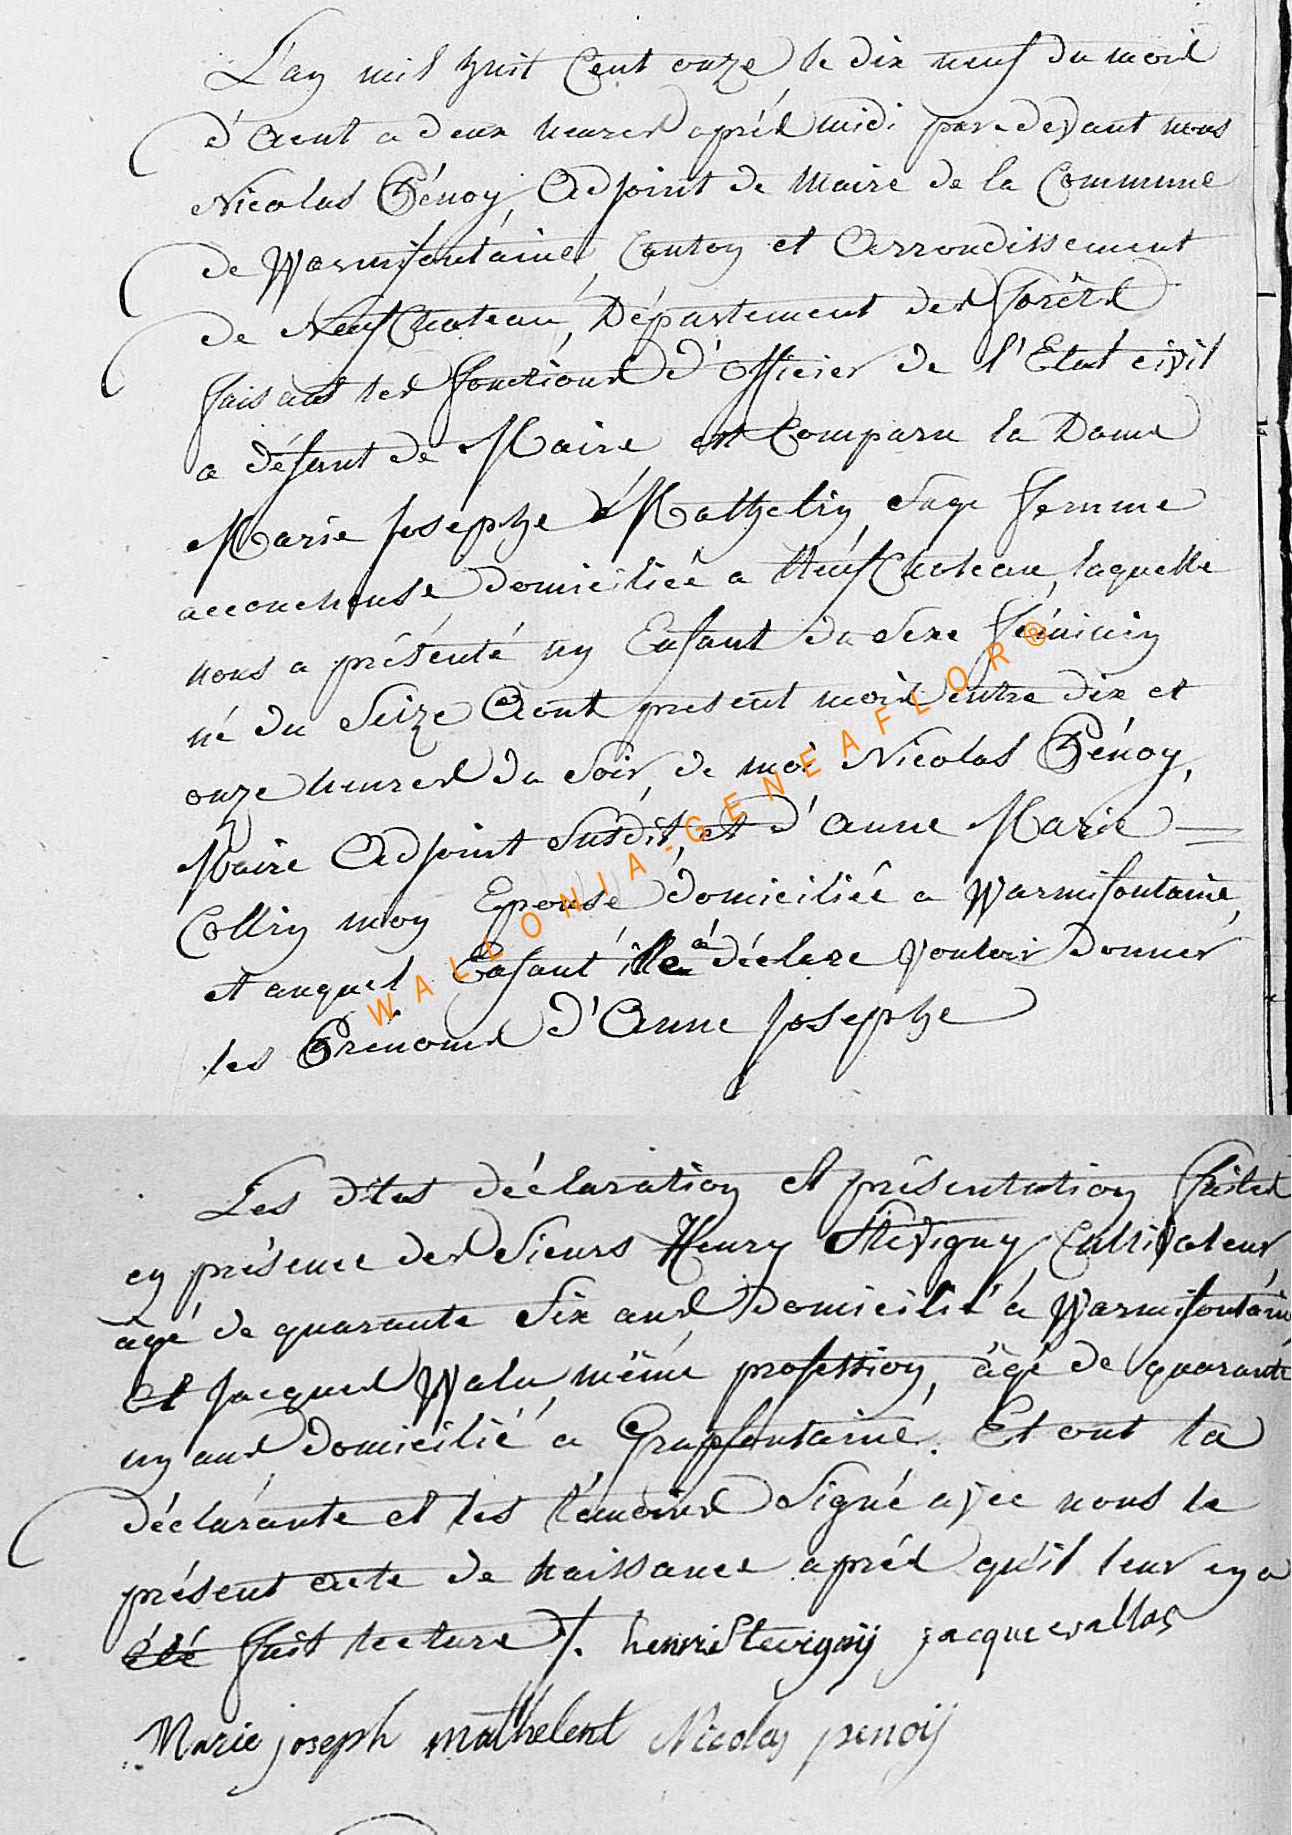 L'an mil huit Cent onze le dix neuf du mois
d'Aout a deux heures après midi par-devant nous
Nicolas Pénoy, Adjoint de Maire de la Commune
de Warmifontaine, Canton et Arrondissement
de Neufchateau, Département des forêts
faisant les fonctions d'officier de l'Etat civil
a défaut de Maire est Comparu la Dame
Marie Josephe Mathelin, Sage femme
accoucheuse domiciliée a Neufchateau, laquelle
nous a présenté un Enfant du Sexe féminin
né du Seize Aout present mois entre dix et
onze heures du Soir, de moi Nicolas Pénoy,
Maire Adjoint Susdit, et d'Anne Marie
Collin mon Epouse domiciliée a Warmifontaine,
et auquel Enfant elle a déclaré vouloir donner
les Prenoms d'Anne Josephe
WALLONIA-GENEAFLOR®
Les dites déclaration et présentation faites
en présence des Sieurs Henry Stevigny Cultivateur
âgé de quarante Six ans domicilié a Warmifontaine
et Jacques Wala, même profession, âgé de quarante
un ans domicilié a Grapfontaine. Et ont la
déclarante et les témoins Signé avec nous le
présent acte de naissance après qu'il leur en a
été fait lecture /. henri Stevignÿ jacque wallas
Marie joseph mathelent Nicolas penoÿ